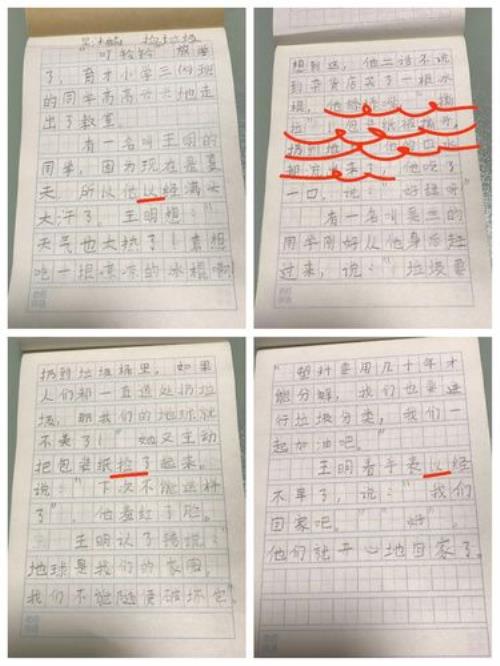 捡垃圾
叮铃铃 放学
了,育才小学三(2)班
的同学高高兴兴地走
出了教室。
有一名叫王明的
同学,因为现在是夏
天,所以他以经满头
大汗了。王明想:“
天气也太热了!真想
吃一根凉凉的冰棍啊
想到这,他二话不说
到杂货店买了一根冰
棍,他
把包装纸撕开,
扔到地 他的口水
都流出来了,他吃了
一口,说:“好舒服
有一名叫吴兰的
同学刚好从他身后赶
过来,说:“垃圾要
扔到垃圾桶里,如果
人们都一直道处扔垃
圾,那我们的地球就
不美了!”她又主动
把包装纸捡了起来。
说:“下次不能这样
了”,他羞红了脸。
王明认了错说:“
地球是我们的家园,
我们不能随便破坏它
“塑料要用几十年才
能分解,我们也要进
行垃圾分类,我们一
起加油吧。”
王明看手表以经
不早了,说:“我们
回家吧。”“好”。
他们就开心地回家了。